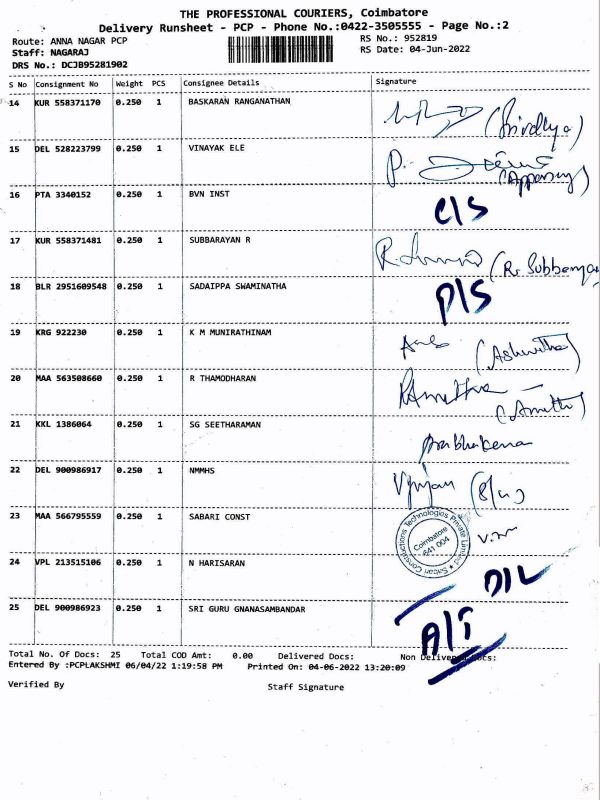 THE PROFESSIONAL COURIERS, Coimbatore
Delivery Runsheet - PCP - Phone No.:0422-3505555 - Page No.:2
Route: ANNA NAGAR PCP
RS No.: 952819
Staff: NAGARAJ
RS Date: 04-Jun-2022
DRS No.: DCJB95281902
S No Consignment No Weight PCS Consignee Details Signature
14 KUR 558371170 0.250 1 BASKARAN RANGANATHAN
15 DEL 528223799 0.250 1 VINAYAK ELE
16 PTA 3340152 0.250 1 BVN INST C/S
17 KUR 558371481 0.250 1 SUBBARAYAN R
18 BLR 2951609548 0.250 1 SADAIPPA SWAMINATHA P/S
19 KRG 922230 0.250 1 K M MUNIRATHINAM
20 MAA 563508660 0.250 1 R THAMODHARAN
21 KKL 1386064 0.250 1 SG SEETHARAMAN
22 DEL 900986917 0.250 1 NMMHS
23 MAA 566795559 0.250 1 SABARI CONST
Constructions Technologies Private Limited
Coimbatore
641 004
24 VPL 213515106 0.250 1 N HARISARAN D/L
25 DEL 900986923 0.250 1 SRI GURU GNANASAMBANDAR A/T
Total No. Of Docs: 25 Total COD Amt: 0.00 Delivered Docs: Non Delivered Docs:
Entered By :PCPLAKSHMI 06/04/22 1:19:58 PM Printed On: 04-06-2022 13:20:09
Verified By
Staff Signature